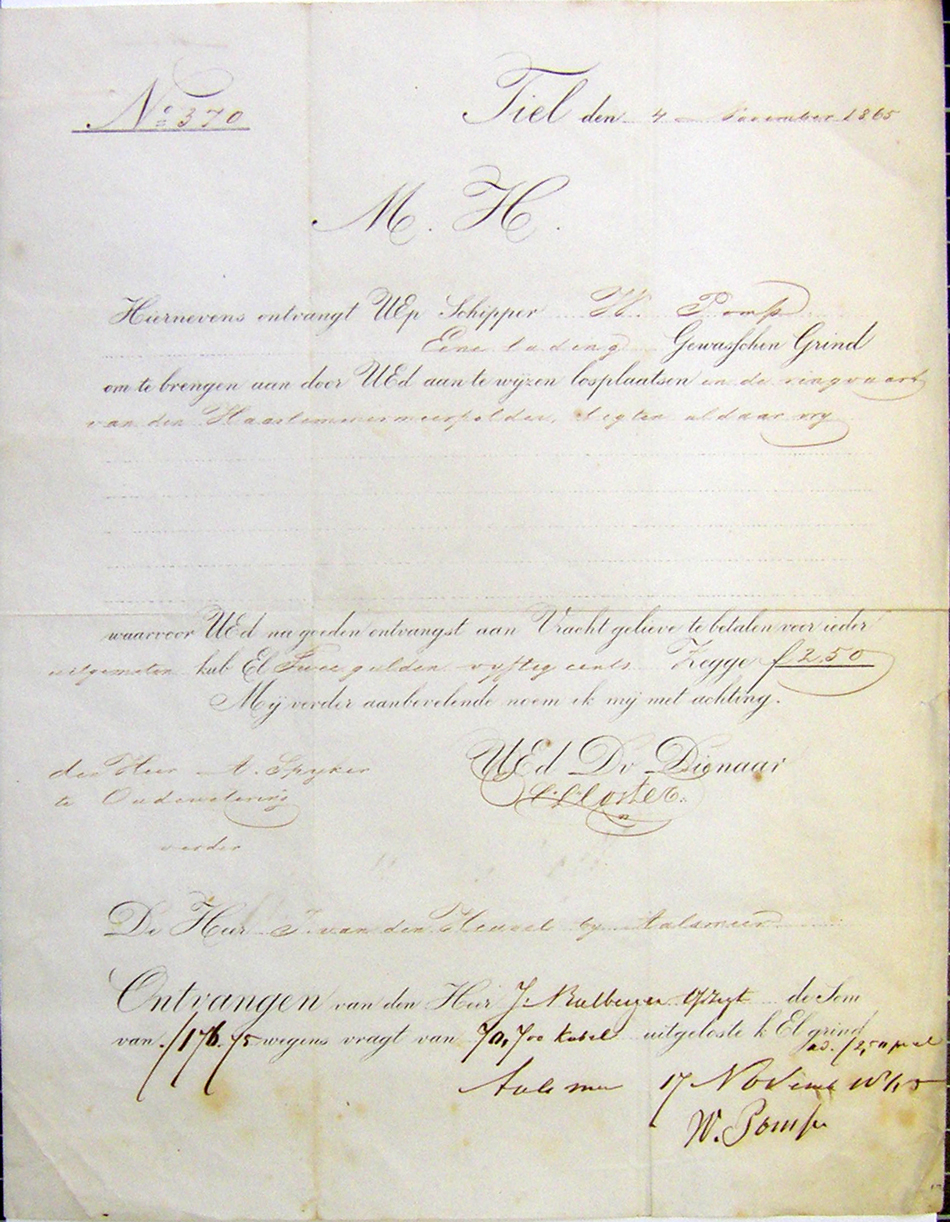 No 370
Tiel den 4 November 1865
M. H.
Hiernevens ontvangt UEp Schipper W. Pomp
Eene lading Gewasschen Grind
om te brengen aan door UEd aan te wyzen losplaatsen in de ringvaart
van den Haarlemmermeerpolder, aldaar vry
waarvoor UEd na goeden ontvangst aan Vracht gelieve te betalen voor ieder
uitgemeten kub El Twee gulden vyftig cents Zegge f 2.50
Mij verder aanbevelende noem ik mij met achting.
UEd Dv Dienaar
den Heer A. Spyker
te Oudewetering
verder
De Heer J. van den Heuvel by Aalsmeer
Ontvangen van den Heer J. de Som
van f 176.75 wegens vragt van 70,700 kubel uitgeloste k El grind
ad. f 2,50 p el
Aalsmeer 17 Novemb 1865
W. Pomp